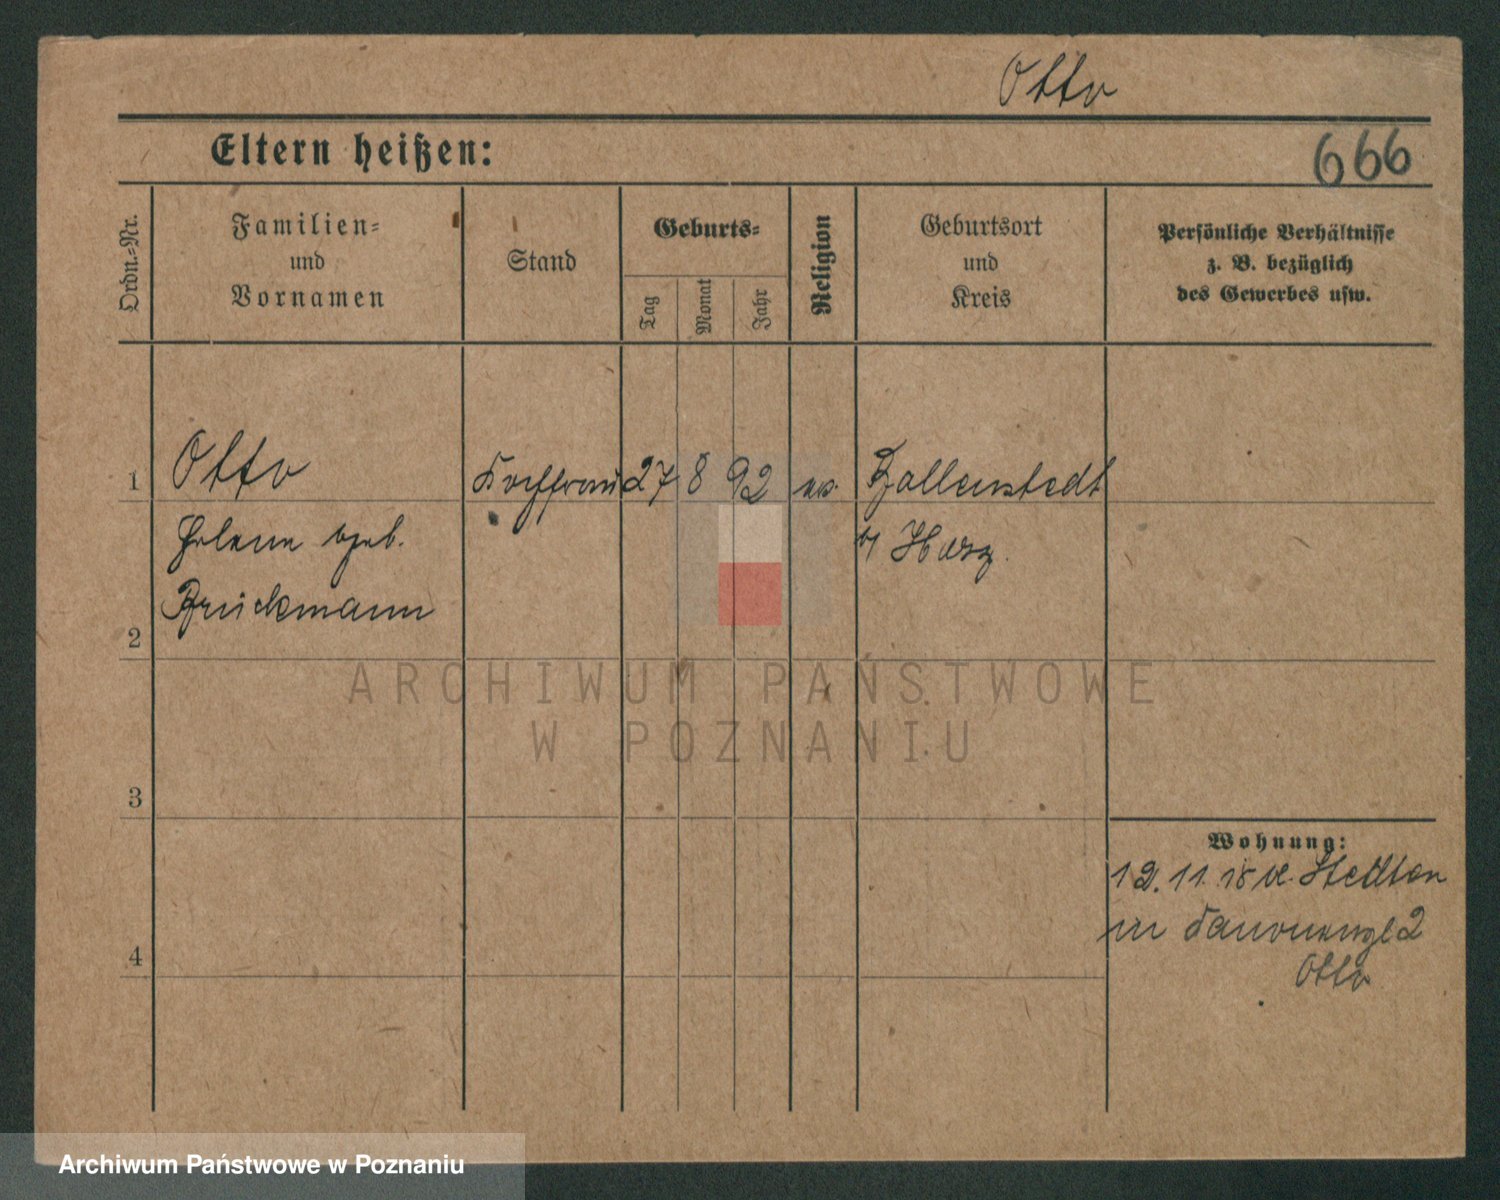 Otto
Eltern heißen:
666
Ordn.-Nr.
Familien-
und
Vornamen
Stand
Geburts-
Tag
Monat
Jahr
Religion
Geburtsort
und
Kreis
Persönliche Verhältnisse
z. B. bezüglich
des Gewerbes usw.
1
Otto
27
8
92
Ballenstedt
Helene geb.
Harz.
Brückmann
2
ARCHIWUM PAŃSTWOWE
W POZNANIU
3
Wohnung:
12. 11. 18
in
2
Otto
4
Archiwum Państwowe w Poznaniu